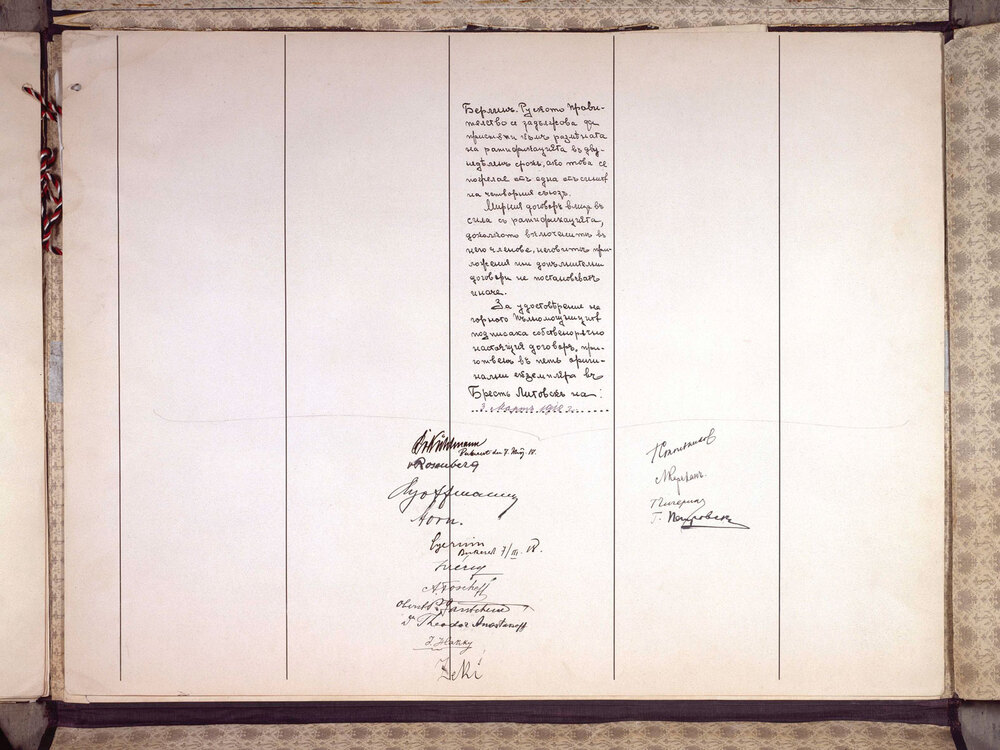 Берлинъ. Руското Прави-
телство се задължава да
пристѫпи къмъ размѣната
на ратификациитѣ въ дву-
недѣленъ срокъ, ако това се
пожелае отъ една отъ силитѣ
на четворния съюзъ.
Мирния договоръ влиза въ
сила съ ратификацията,
доколкото включенитѣ въ
него членове, неговитѣ при-
ложения или допълнителни
договори не постановяватъ
иначе.
За удостовѣрение на
горното пълномощницитѣ
подписаха собственорѫчно
настоящия договоръ, при-
готвенъ въ петь ориги-
нални екземпляра въ
Брестъ Литовскъ на:
3 Мартъ 1918 г.
Kühlmann
Bukarest den 7. März 18.
v Rosenberg
Hoffmann
Horn.
Czernin
Bukarest 7/III 18.
Mérey
A. Toscheff
Oberst P. Gantscheff
Dr Theodor Anastassoff
I. Hakky
Zeki
Г. Петровскій